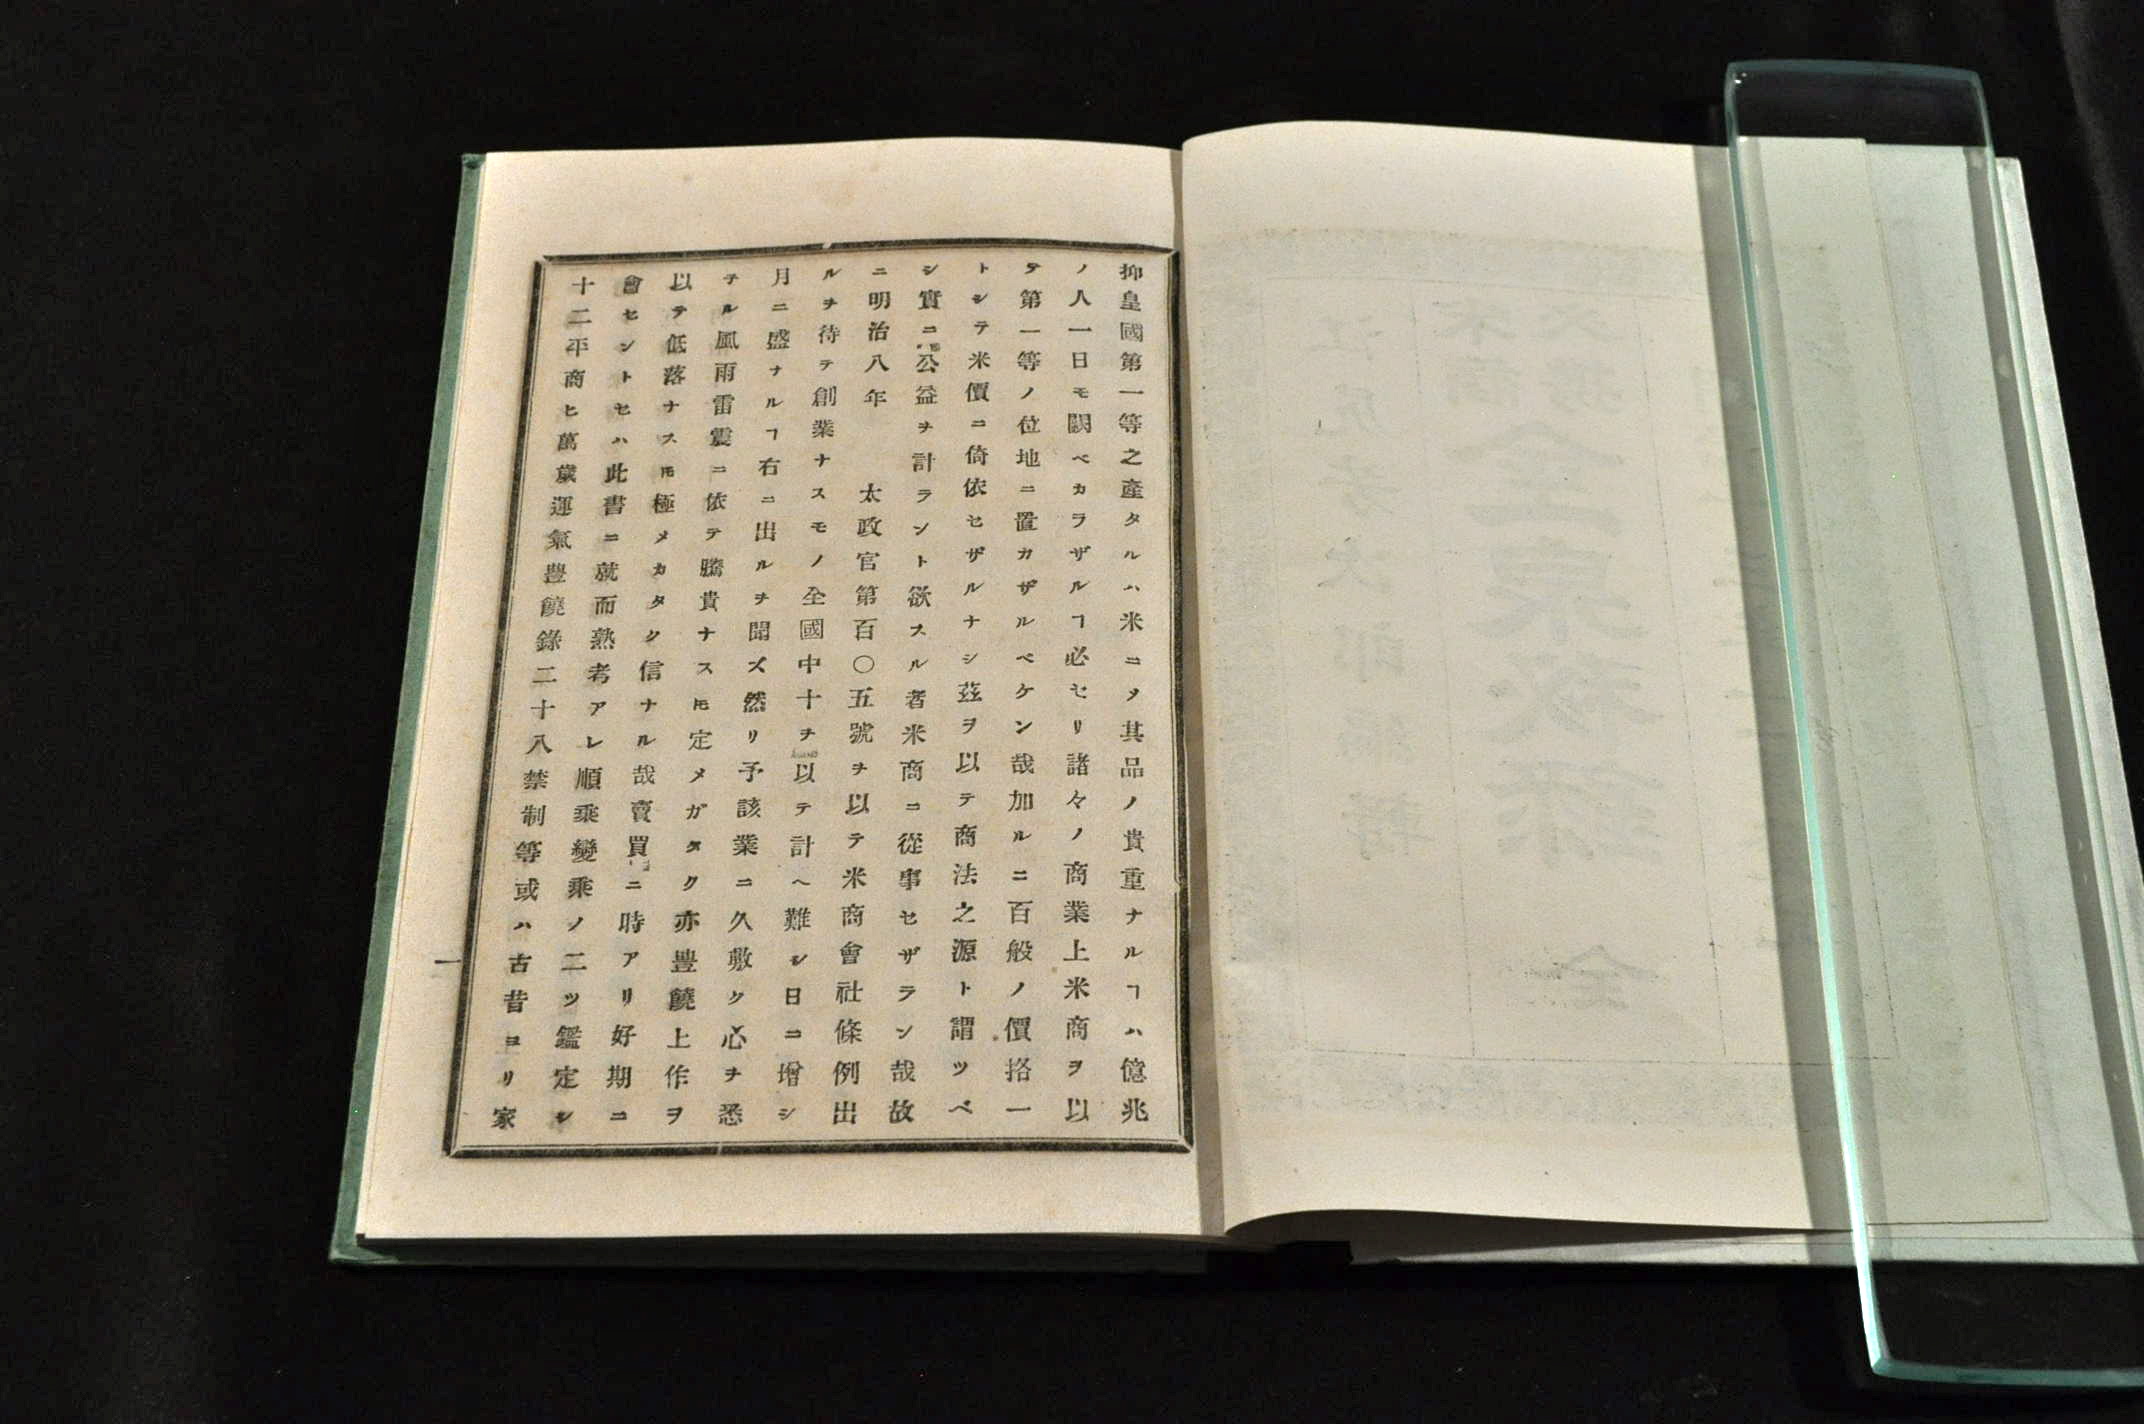 抑皇國第一等之產タルハ米ニヲ其品ノ貴重ナルヿハ億兆
ノ人一日モ闕ベカラザルヿ必セリ諸々ノ商業上米商ヲ以
テ第一等ノ位地ニ置カザルベケン哉加ルニ百般ノ價格一
トシテ米價ニ倚依セザルナシ茲ヲ以テ商法之源ト謂ツベ
シ實ニ公益ヲ計ラント欲スル者米商ニ從事セザラン哉故
ニ明治八年 太政官第百〇五號ヲ以テ米商會社條例出
ルヲ待テ創業ナスモノ全國中十ヲ以テ計ヘ難シ日ニ增シ
月ニ盛ナルヿ右ニ出ルヲ聞ズ然リ予該業ニ久敷ク心ヲ悉
テル風雨雷震ニ依テ騰貴ナスモ定メガタク亦豊饒上作ヲ
以テ低落ナスモ極メカタク信ナル哉賣買ニ時アリ好期ニ
會セントセハ此書ニ就而熟考アレ順乘變乘ノ二ツ鑑定シ
十二平商ヒ萬歲運氣豊饒錄二十八禁制等或ハ古昔ヨリ家
一